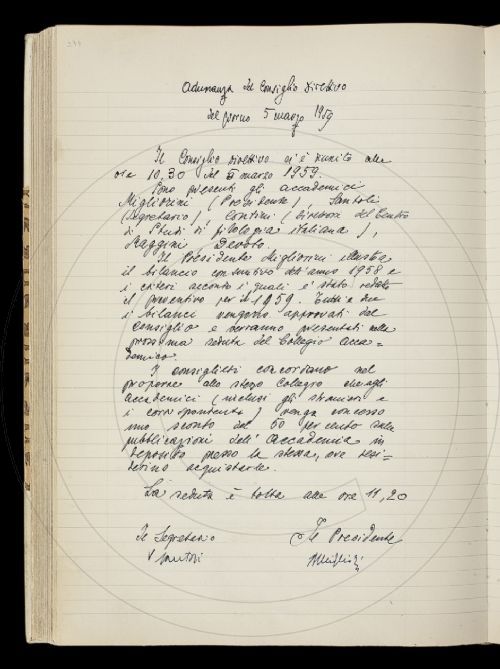 Adunanza del Consiglio Direttivo
del giorno 5 marzo 1959
Il Consiglio Direttivo si è riunito alle
ore 10,30 del 5 marzo 1959.
Sono presenti gli accademici
Migliorini (Presidente), Santoli
(Segretario), Contini (Direttore del Centro
di Studi di filologia italiana),
Raggini, Devoto.
Il Presidente Migliorini illustra
il bilancio consuntivo dell'anno 1958 e
i criteri secondo i quali è stato redatto
il preventivo per il 1959. Tutti e due
i bilanci vengono approvati dal
Consiglio e verranno presentati nella
prossima seduta del Collegio acca=
demico.
I consiglieri concordano nel
proporre allo stesso Collegio che agli
accademici (inclusi gli stranieri e
i corrispondenti) venga concesso
uno sconto del 50 per cento sulle
pubblicazioni dell'Accademia in
deposito presso la stessa, ove desi=
derino acquistarle.
La seduta è tolta alle ore 11,20
Il Segretario Il Presidente
V Santoli BMigliorini